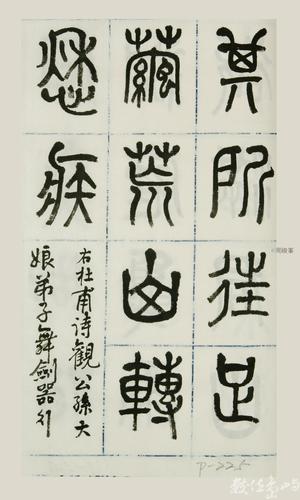 其所往足
繭荒山轉
愁疾
右杜甫詩觀公孫大
娘弟子舞劍器行
P-225